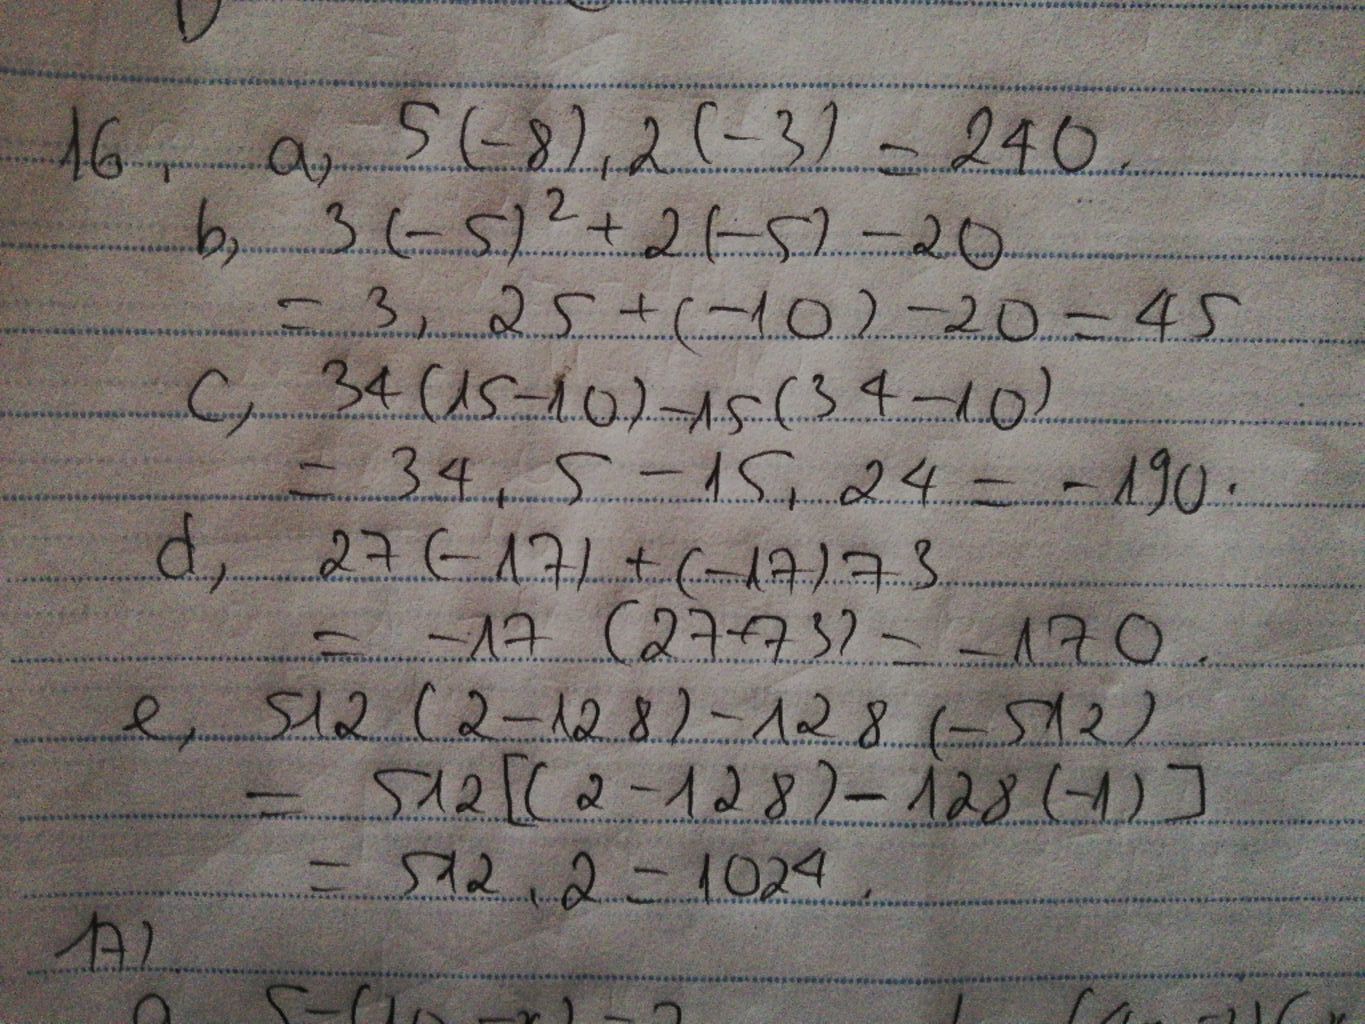 16. a, 5(-8).2(-3) = 240.
b, 3(-5)² + 2(-5) - 20
= 3. 25 + (-10) - 20 = 45
c, 34(15-10)-15(34-10)
= 34. 5 - 15. 24 = -190.
d, 27(-17) + (-17)73
= -17 (27+73) = -170.
e, 512 (2-128) - 128 (-512)
= 512[(2-128) - 128(-1)]
= 512.2 = 1024.
17)